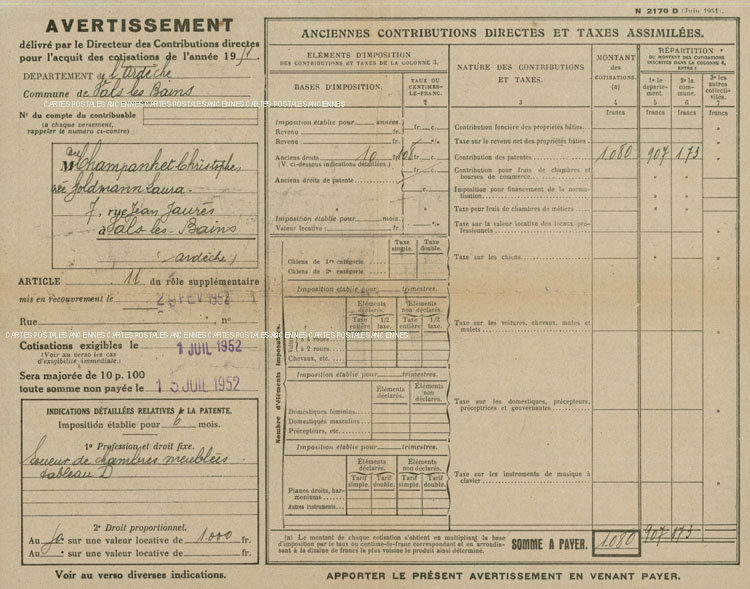 N 2170 D (Juin 1951).
AVERTISSEMENT
délivré par le Directeur des Contributions directes
pour l'acquit des cotisations de l'année 1951
DÉPARTEMENT de l'Ardèche
Commune de Vals les Bains
CARTES POSTALES ANCIENNES CARTES POSTALES ANCIENNES CARTES POSTALES ANCIENNES
N° du compte du contribuable
(à chaque versement,
rappeler le numéro ci-contre)
M Champanhet Christophe
née Goldmann Laura
7, rue Jean Jaurès
à Vals-les-Bains
(Ardèche)
ARTICLE 11 du rôle supplémentaire
mis en recouvrement le 29 FEV 1952
Rue , n°
CARTES POSTALES ANCIENNES CARTES POSTALES ANCIENNES CARTES POSTALES ANCIENNES
Cotisations exigibles le 1 JUIL 1952
(Voir au verso les cas
d'exigibilité immédiate.)
Sera majorée de 10 p. 100
toute somme non payée le 15 JUIL 1952
INDICATIONS DÉTAILLÉES RELATIVES A LA PATENTE.
Imposition établie pour 6 mois.
1° Profession et droit fixe.
Loueur de chambres meublées
tableau D
2° Droit proportionnel.
Au sur une valeur locative de 1.000 fr.
Au sur une valeur locative de fr.
Voir au verso diverses indications.
ANCIENNES CONTRIBUTIONS DIRECTES ET TAXES ASSIMILÉES.
ÉLÉMENTS D'IMPOSITION
DES CONTRIBUTIONS ET TAXES DE LA COLONNE 3.
BASES D'IMPOSITION.
1
TAUX OU
CENTIMES-
LE-FRANC.
2
NATURE DES CONTRIBUTIONS
ET TAXES.
3
MONTANT
des
COTISATIONS.
(a)
4
RÉPARTITION
DU MONTANT DES COTISATIONS
INSCRITES DANS LA COLONNE 4,
ENTRE :
1° le
départe-
ment.
5
2° la
com-
mune.
6
3° les
autres
collecti-
vités.
7
francs francs francs francs
Imposition établie pour années.
Revenu fr. c.
Revenu fr. c.
Anciens droits 10 108
(V. ci-dessous indications détaillées.)
Anciens droits de patente
Imposition établie pour mois.
Valeur locative fr. %
Contribution foncière des propriétés bâties
Taxe sur le revenu net des propriétés bâties
Contribution des patentes 1.080 907 173
Contribution pour frais de chambres et
bourses de commerce
Imposition pour financement de la norma-
lisation
Taxe pour frais de chambres de métiers
Taxe sur la valeur locative des locaux pro-
fessionnels
Taxe simple. Taxe double.
Chiens de 1re catégorie
Chiens de 2e catégorie
Taxe sur les chiens
Nombre d'éléments imposables.
Imposition établie pour trimestres.
Éléments déclarés. Éléments non déclarés.
Taxe entière 1/2 taxe. Taxe entière 1/2 taxe.
à 4 roues
à 2 roues
Chevaux, etc.
Taxe sur les voitures, chevaux, mules et
mulets
Imposition établie pour trimestres.
Éléments déclarés. Éléments non déclarés.
Domestiques féminins
Domestiques masculins
Précepteurs, etc.
Taxe sur les domestiques, précepteurs,
préceptrices et gouvernantes
Imposition établie pour trimestres.
Éléments déclarés. Éléments non déclarés.
Tarif simple. Tarif double. Tarif simple. Tarif double.
Pianos droits, har-
moniums
Autres instruments
Taxe sur les instruments de musique à
clavier
(a) Le montant de chaque cotisation s'obtient en multipliant la base
d'imposition par le taux ou centime-le-franc correspondant et en arrondis-
sant à la dizaine de francs la plus voisine le produit ainsi déterminé.
SOMME A PAYER. 1.080 907 173
APPORTER LE PRÉSENT AVERTISSEMENT EN VENANT PAYER.